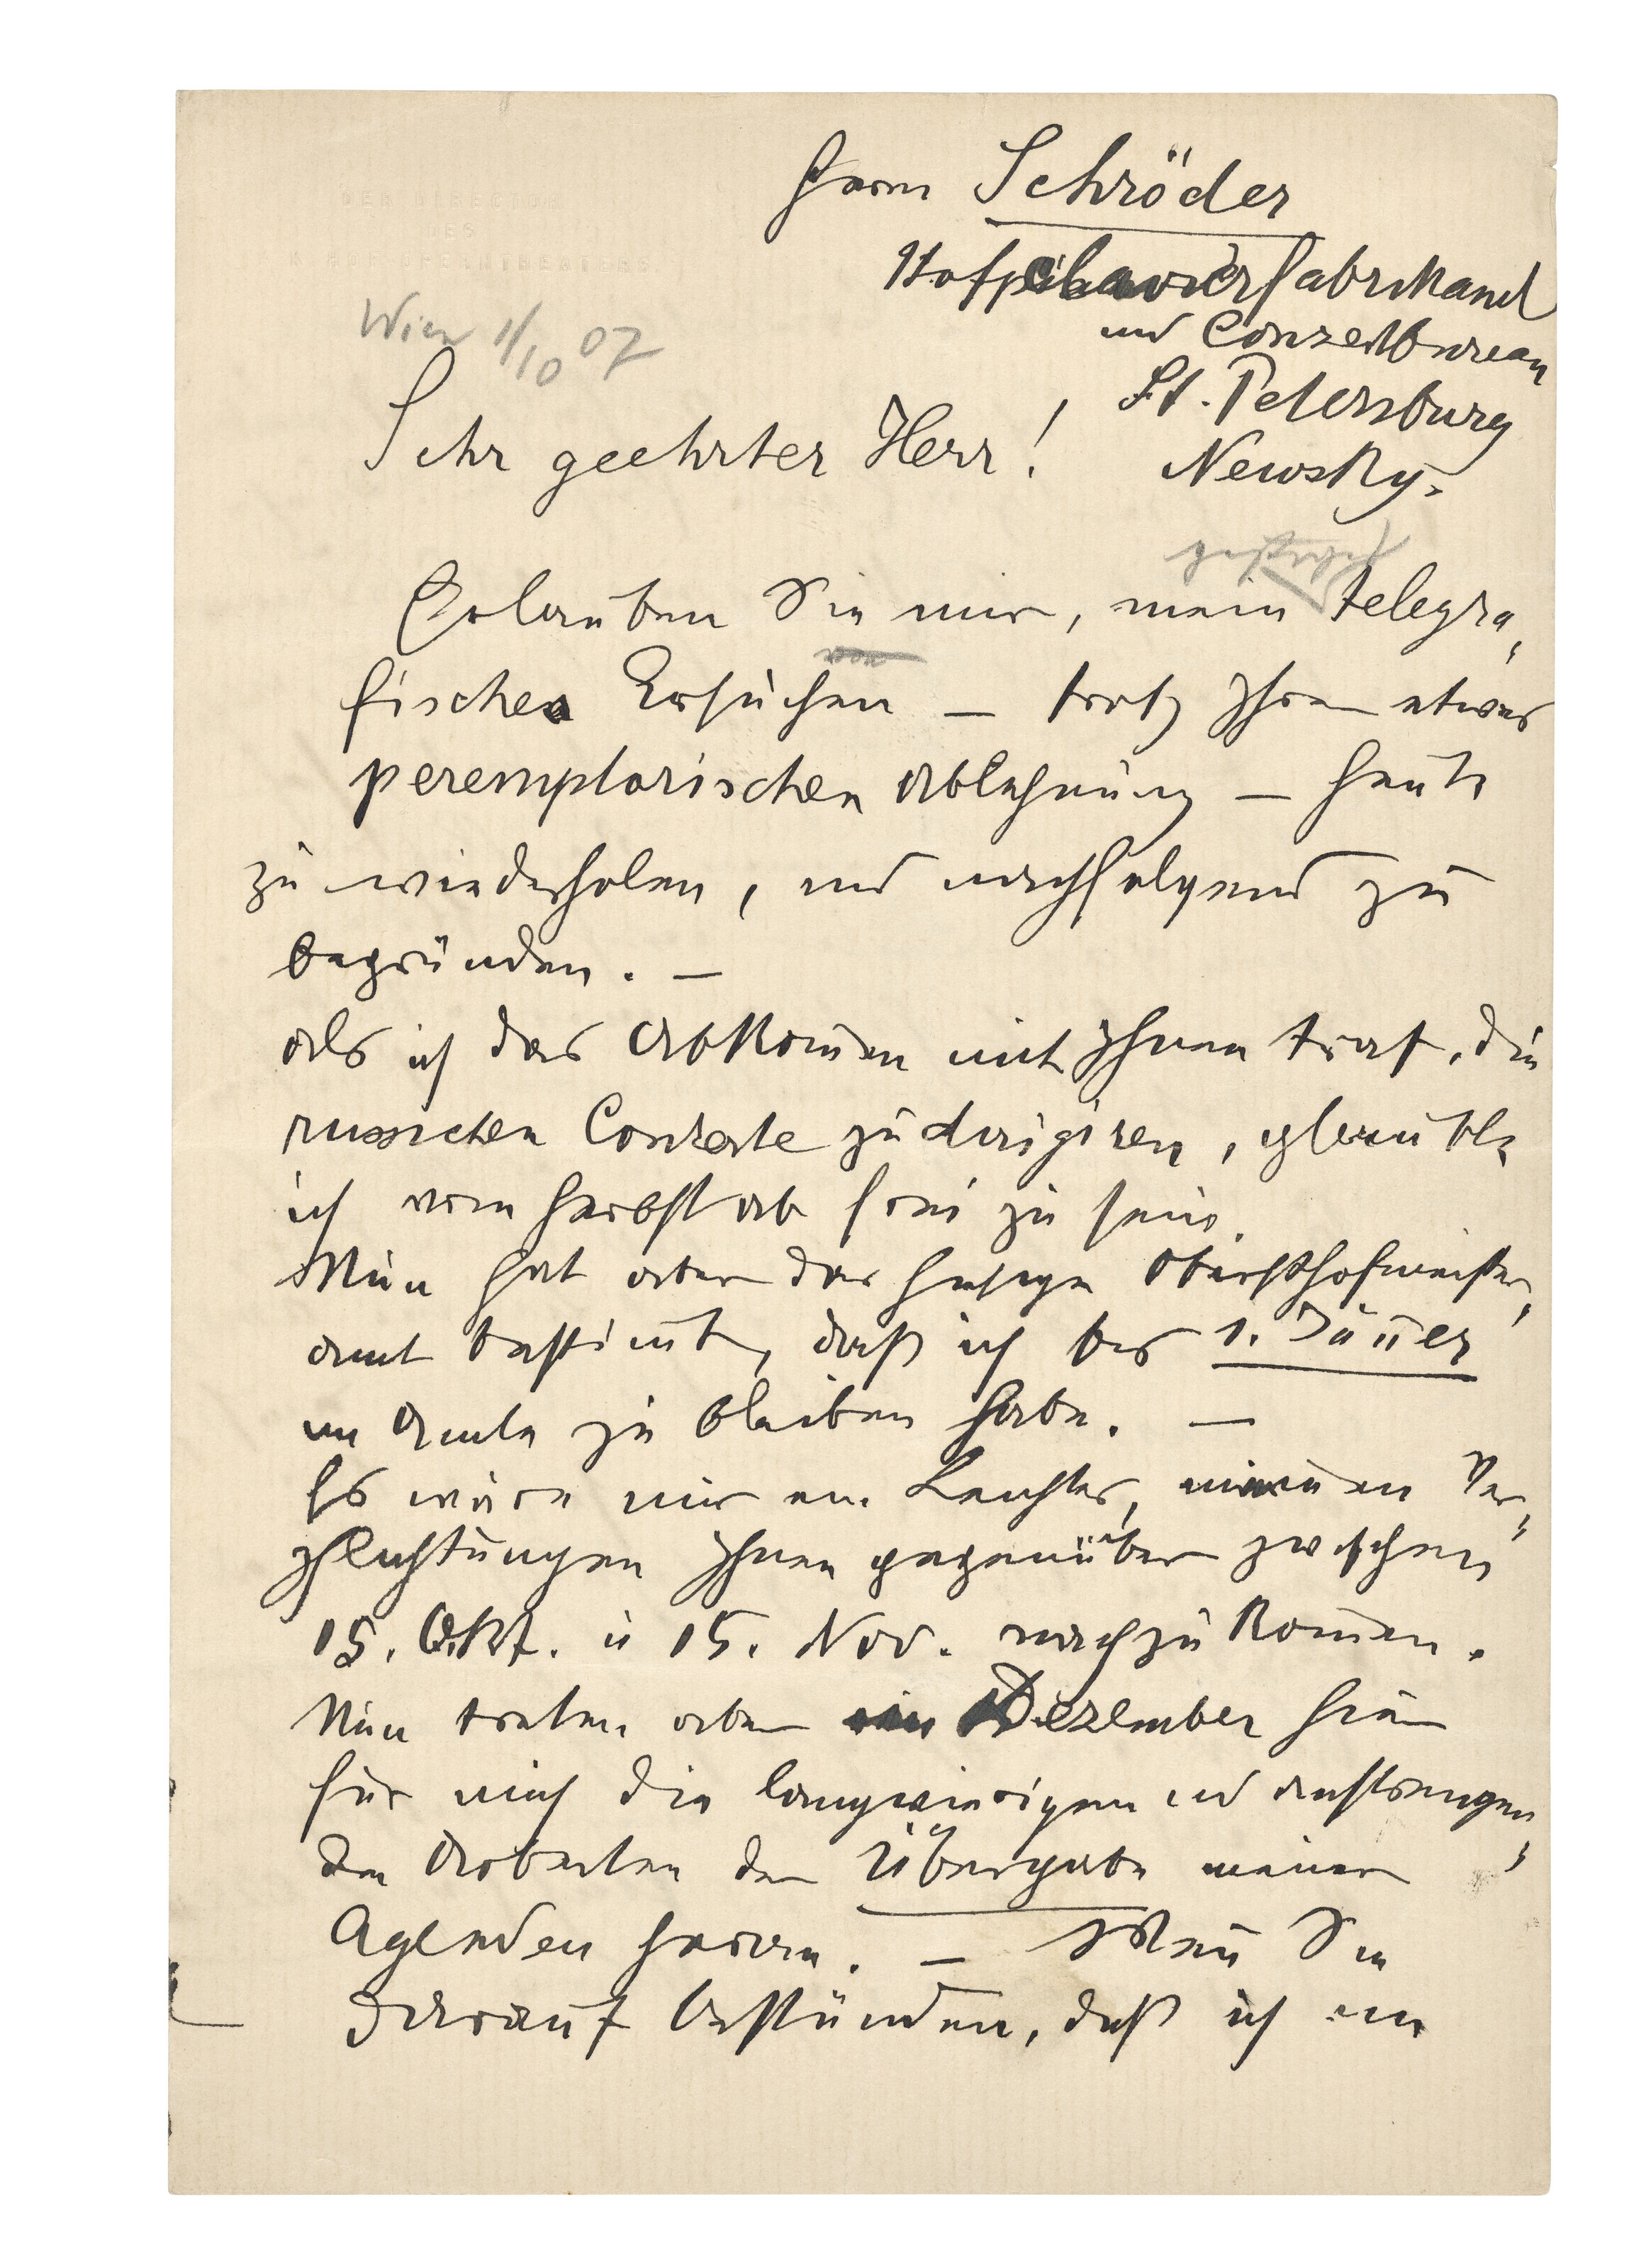 DER DIRECTOR
DES
K. K. HOFOPERNTHEATERS
Herrn Schröder
Hofpclavierfabrikand
und Conzertbureau
St. Petersburg
Newsky.
Wien 1/10 07
Sehr geehrter Herr!
Erlauben Sie mir, mein telegra-
fisches Ersuchen — trotz Ihrer etwas
peremptorischen Ablehnung — heute
zu wiederholen, und nachfolgend zu
begründen. —
Als ich das Abkom̅en mit Ihnen traf, die
russischen Conzerte zu dirigiren, glaubte
ich vom Herbst ab frei zu sein.
Nun hat aber das hiesige Obersthofmeister-
amt bestim̅t, daß ich bis 1. Jän̅er
im Amte zu bleiben habe. —
Es wäre mir ein Leichtes, meinen Ver-
pflichtungen Ihnen gegenüber zwischen
15. Okt. u 15. Nov. nachzukom̅en.
Nun treten aber im Dezember hier
für mich die langwierigen und anstrengen-
den Arbeiten der Übergabe meiner
Agenden heran. — Wen̅ Sie
darauf bestünden, daß ich im